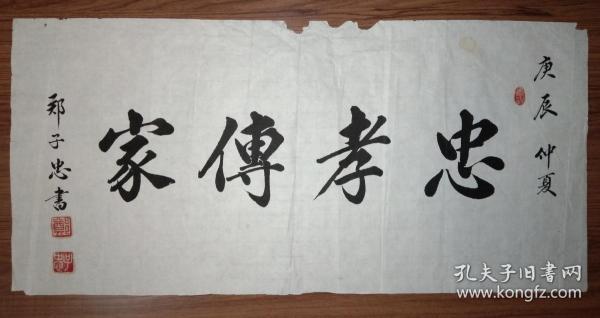 庚辰仲夏
忠孝傳家
郑子忠書
孔夫子旧書网
www.kongfz.com